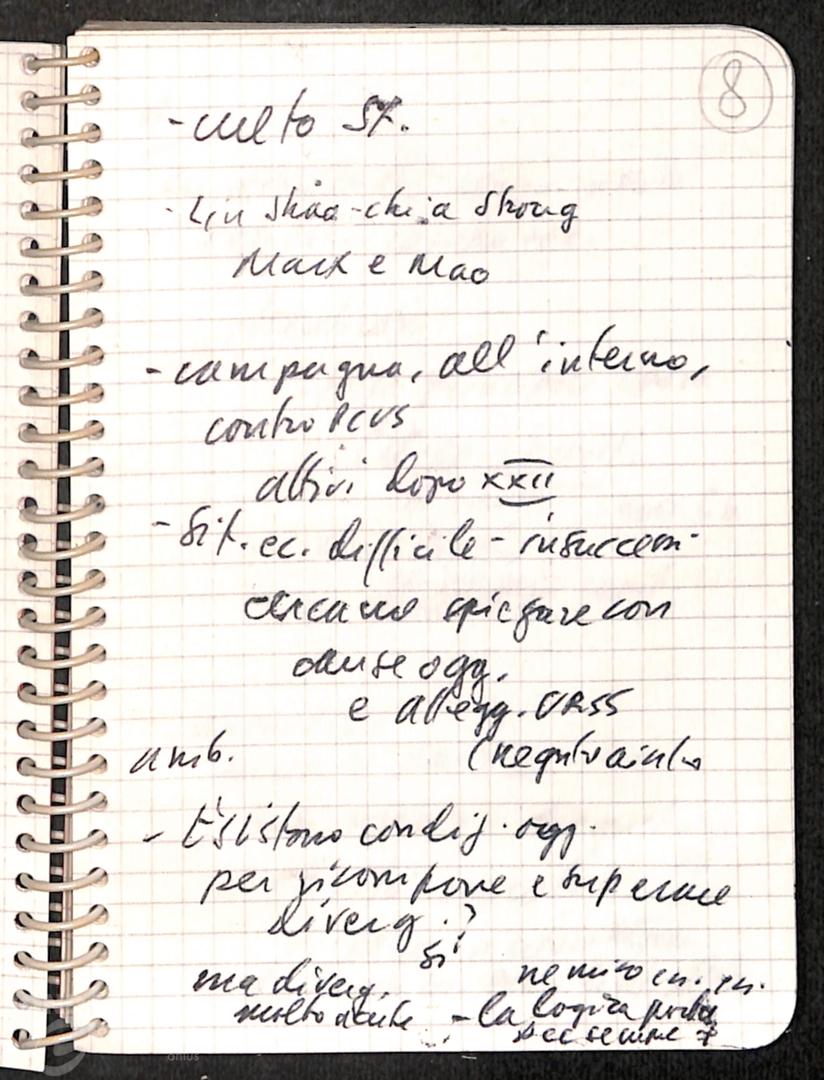 8
- culto St.
- Liu Shao-chi a Strong
Marx e Mao
- campagna, all'interno,
contro PCUS
attivi dopo XXII
- Sit. ec. difficile - insuccessi
cercano spiegare con
cause ogg.
e atегg. URSS
amb. (negato aiuto
- Esistono condiz. ogg.
per ricomporre e superare
diverg.?
si
ma diverg. nemico
molto acute - la logica porta